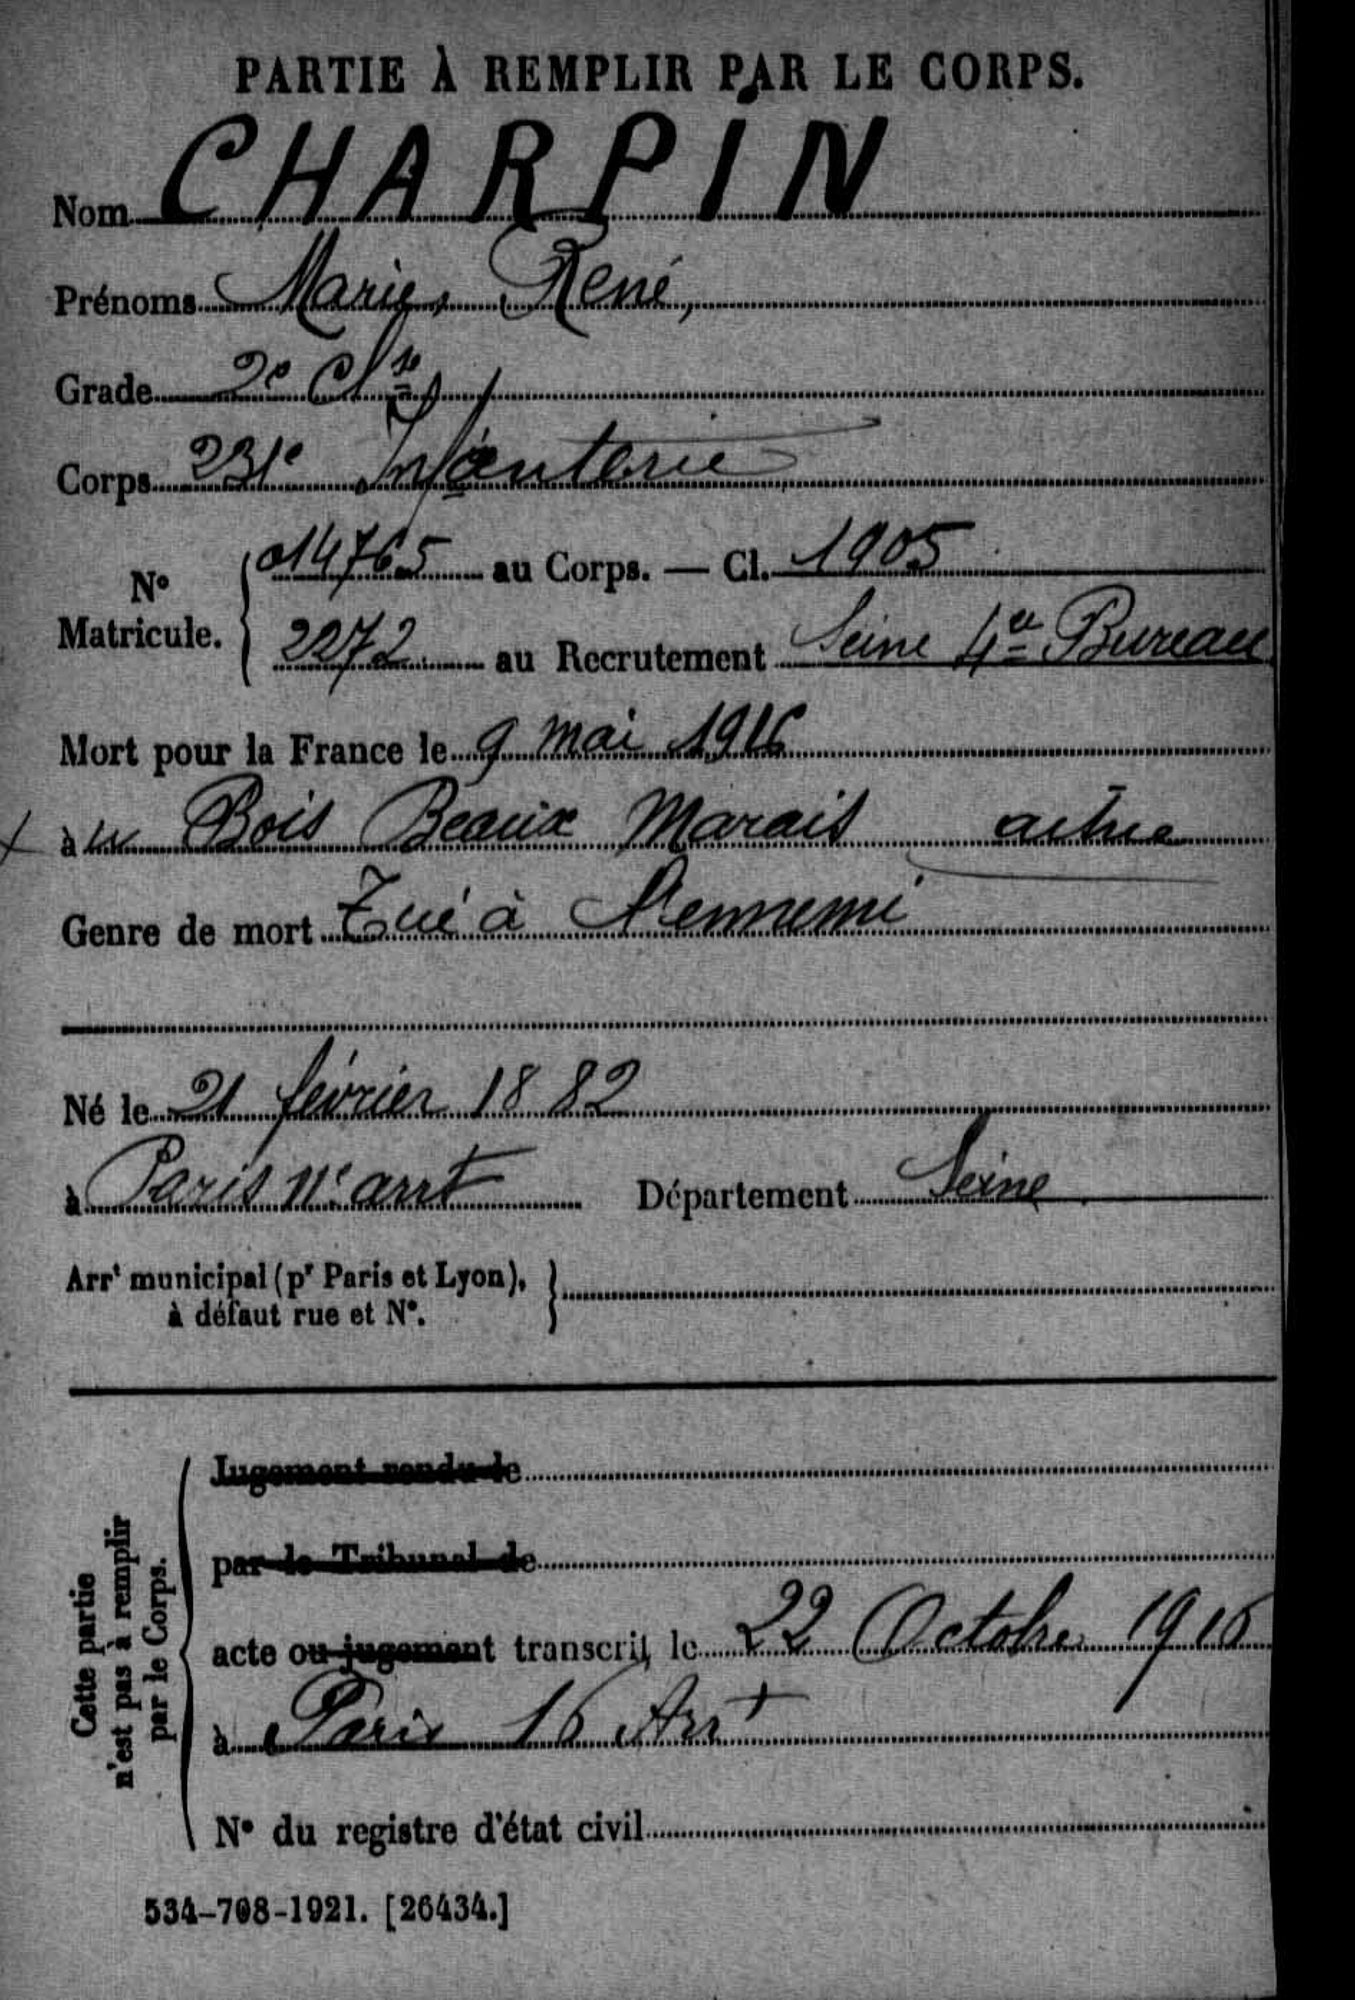 PARTIE À REMPLIR PAR LE CORPS.
Nom CHARPIN
Prénoms Marie, René,
Grade 2e Cl
Corps 231e Infanterie
N° Matricule. 014765 au Corps. — Cl. 1905
2272 au Recrutement Seine 4e Bureau
Mort pour la France le 9 mai 1916
à Bois Beaux Marais
Genre de mort Tué à l'ennemi
Né le 21 février 1882
à Paris 11e arrt Département Seine
Arrt municipal (pr Paris et Lyon),
à défaut rue et N°.
Cette partie
n'est pas à remplir
par le Corps.
Jugement rendu le
par le Tribunal de
acte ou jugement transcrit le 22 Octobre 1916
à Paris 16 Arrt
N° du registre d'état civil
534-708-1921. [26434.]